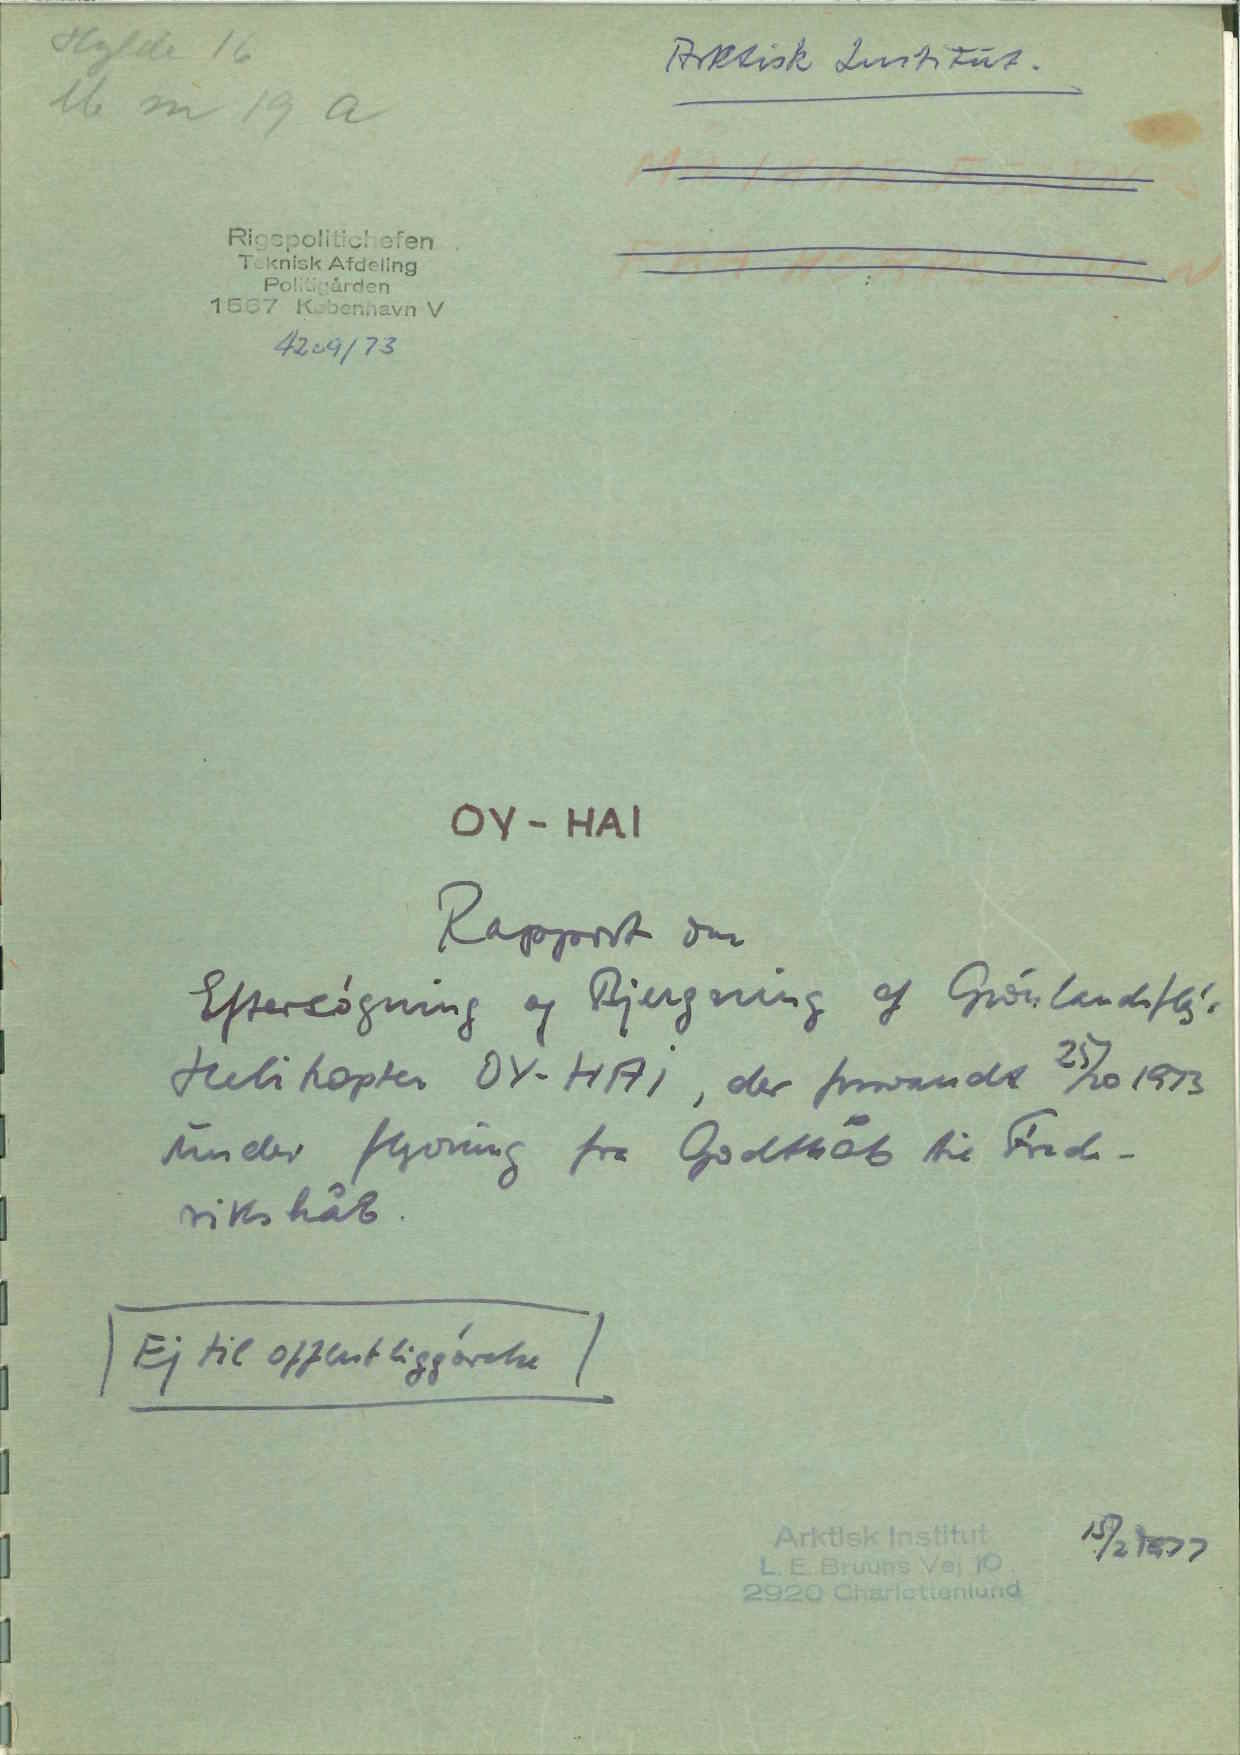 Hylde 16
Arktisk Institut.
m 19 a
Rigspolitichefen
Teknisk Afdeling
Politigården
1567 København V
4209/73
OY-HAI
Rapport om
Eftersøgning og Bjergning af Grönlandsfly's
Helikopter OY-HAi, der forsvandt 25/10 1973
under flyvning fra Godthåb til Frede-
rikshåb.
Ej til offentliggørelse
Arktisk Institut
L. E. Bruuns Vej 10
2920 Charlottenlund
15/2 1977